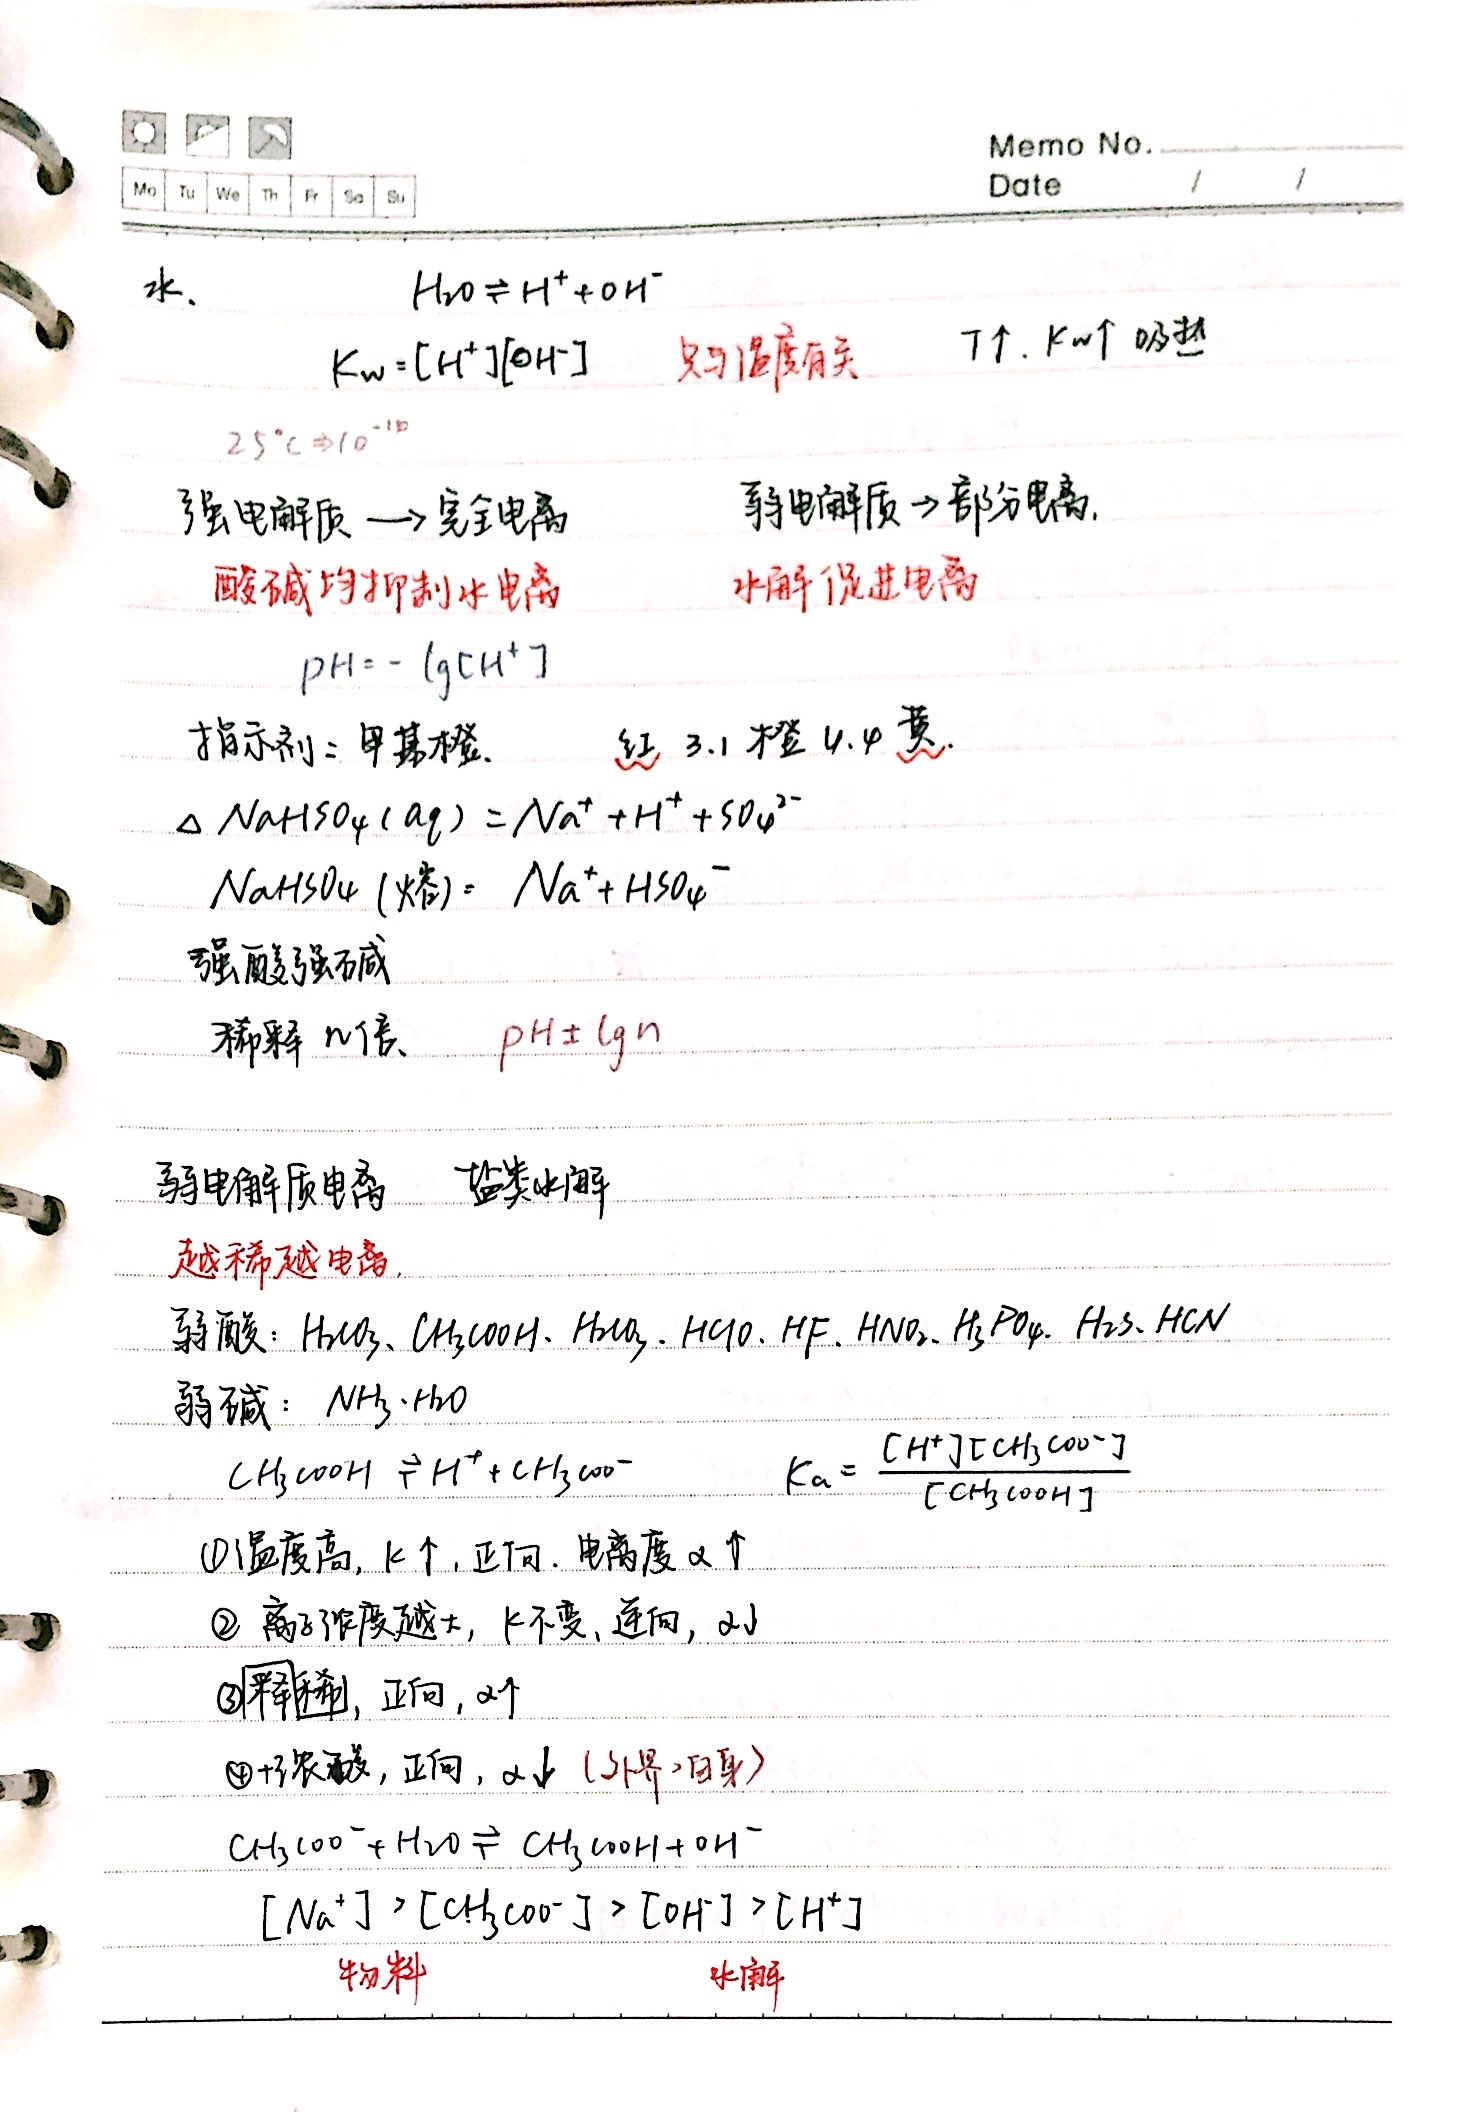 Memo No.
Mo Tu We Th Fr Sa Su
Date / /
水、 H₂O ⇌ H⁺ + OH⁻
Kw = [H⁺][OH⁻] 只与温度有关 T↑. Kw↑ 吸热
25°C ⇒ 10⁻¹⁰
强电解质 → 完全电离 弱电解质 → 部分电离.
酸碱均抑制水电离 水解促进电离
pH = - lg[H⁺]
指示剂: 甲基橙. 红 3.1 橙 4.4 黄.
△ NaHSO₄(aq) = Na⁺ + H⁺ + SO₄²⁻
NaHSO₄ (熔) = Na⁺ + HSO₄⁻
强酸强碱
稀释 n倍、 pH ± lgn
弱电解质电离 盐类水解
越稀越电离.
弱酸: H₂CO₃、CH₃COOH、H₂CO₃. HClO. HF. HNO₂、H₃PO₄. H₂S、HCN
弱碱: NH₃·H₂O
CH₃COOH ⇌ H⁺ + CH₃COO⁻ Ka = [H⁺][CH₃COO⁻] / [CH₃COOH]
①温度高, K↑, 正向. 电离度α↑
② 离子浓度越大, K不变、逆向, α↓
③释稀, 正向, α↑
④+浓酸, 正向, α↓ (外界>自身)
CH₃COO⁻ + H₂O ⇌ CH₃COOH + OH⁻
[Na⁺] > [CH₃COO⁻] > [OH⁻] > [H⁺]
物料 水解